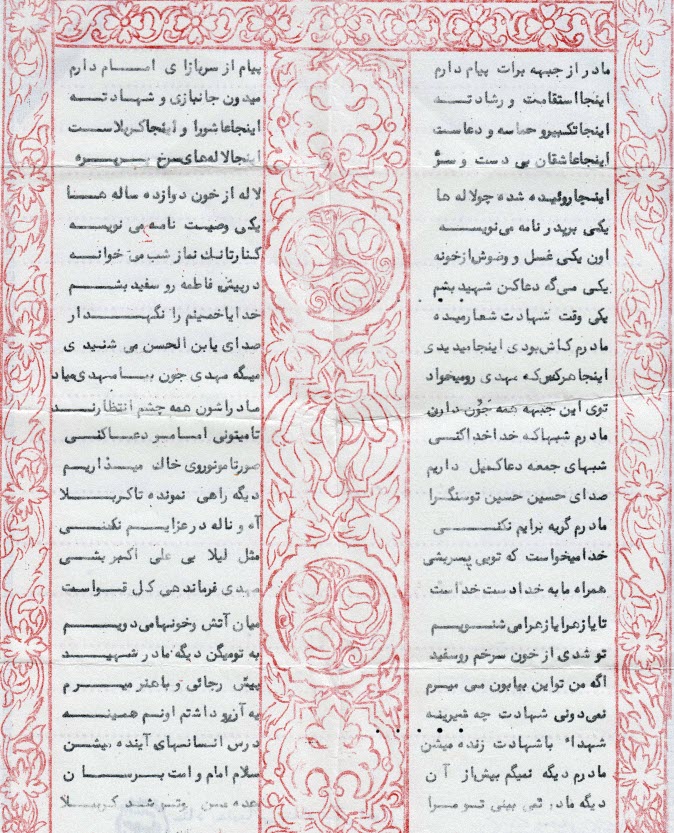 مادر از جبهه برات پیام دارم پیام از سربازای امام دارم
اینجا استقامت و رشادته میدون جانبازی و شهادته
اینجا تکبیر و حماسه و دعاست اینجا عاشورا و اینجا کربلاست
اینجا عاشقان بی دست و سرُ اینجا لاله‌های سرخ پرپره
اینجا روئیده شده چو لاله ها لاله از خون دوازده ساله ها
یکی بر پدر نامه می نویسه یکی وصیت نامه می نویسه
اون یکی غسل و وضوش از خونه کنار تانک نماز شب می خوانه
یکی می‌گه دعا کن شهید بشم در پیش فاطمه رو سفید بشم
یکی وقت شهادت شعار میده خدایا خمینیم را نگهدار
مادرم کاش بودی اینجا میدیدی صدای یابن الحسن می شنیدی
اینجا هر کس که مهدی رو میخواد میگه مهدی جون بیا مهدی میاد
توی این جبهه همه جَوُن دارن مادراشون همه چشم انتظارند
مادرم شبها که خدا خدا کنی تا میتونی امامو دعا کنی
شبهای جمعه دعا کمیل داریم صورتامونو روی خاک میذاریم
صدای حسین حسین تو سنگرا دیگه راهی نمونده تا کربلا
مادرم گریه برایم نکنی آه و ناله در عزایم نکنی
خدا میخواست که تو بی پسر بشی مثل لیلا بی علی اکبر بشی
همراه ما به خدا دست خداست مهدی فرماندهی کل قواست
تا یا زهرا یا زهرا می شنویم میان آتش و خونها می دویم
تو شدی از خون سرخم روسفید به تو میگن دیگه مادر شهید
اگه من تو این بیابون می میرم پیش رجائی و باهنر میرم
نمی‌دونی شهادت چه شیرینه یه آرزو داشتم اونم همینه
شهداء با شهادت زنده میشن درس انسانهای آینده میشن
مادرم دیگه نمیگم بیش از آن سلام امام و امت برسان
دیگه مادر نمی بینی تو مرا